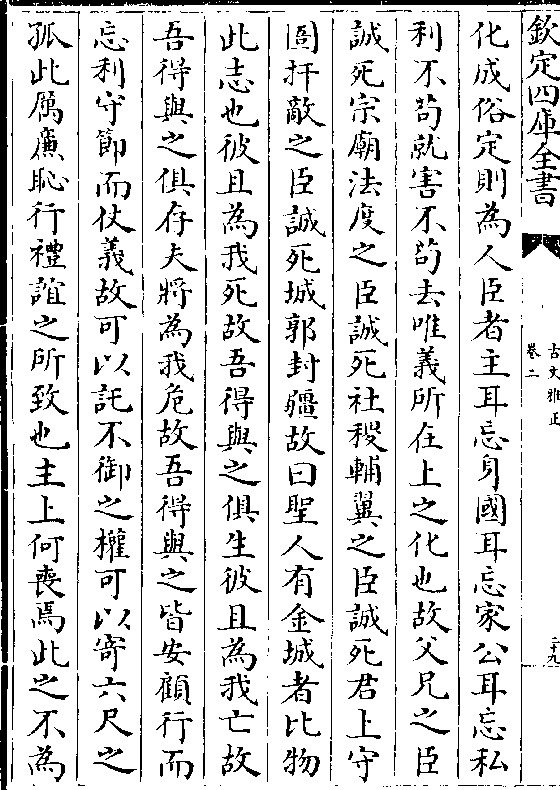 欽定四庫全書
古文雅正
卷二
二十九
化成俗定則為人臣者主耳忘身國耳忘家公耳忘私
利不茍就害不茍去唯義所在上之化也故父兄之臣
誠死宗廟法度之臣誠死社稷輔翼之臣誠死君上守
圄扞敵之臣誠死城郭封疆故曰聖人有金城者比物
此志也彼且為我死故吾得與之俱生彼且為我亡故
吾得與之俱存夫將為我危故吾得與之皆安顧行而
忘利守節而仗義故可以託不御之權可以寄六尺之
孤此厲廉恥行禮誼之所致也主上何喪焉此之不為